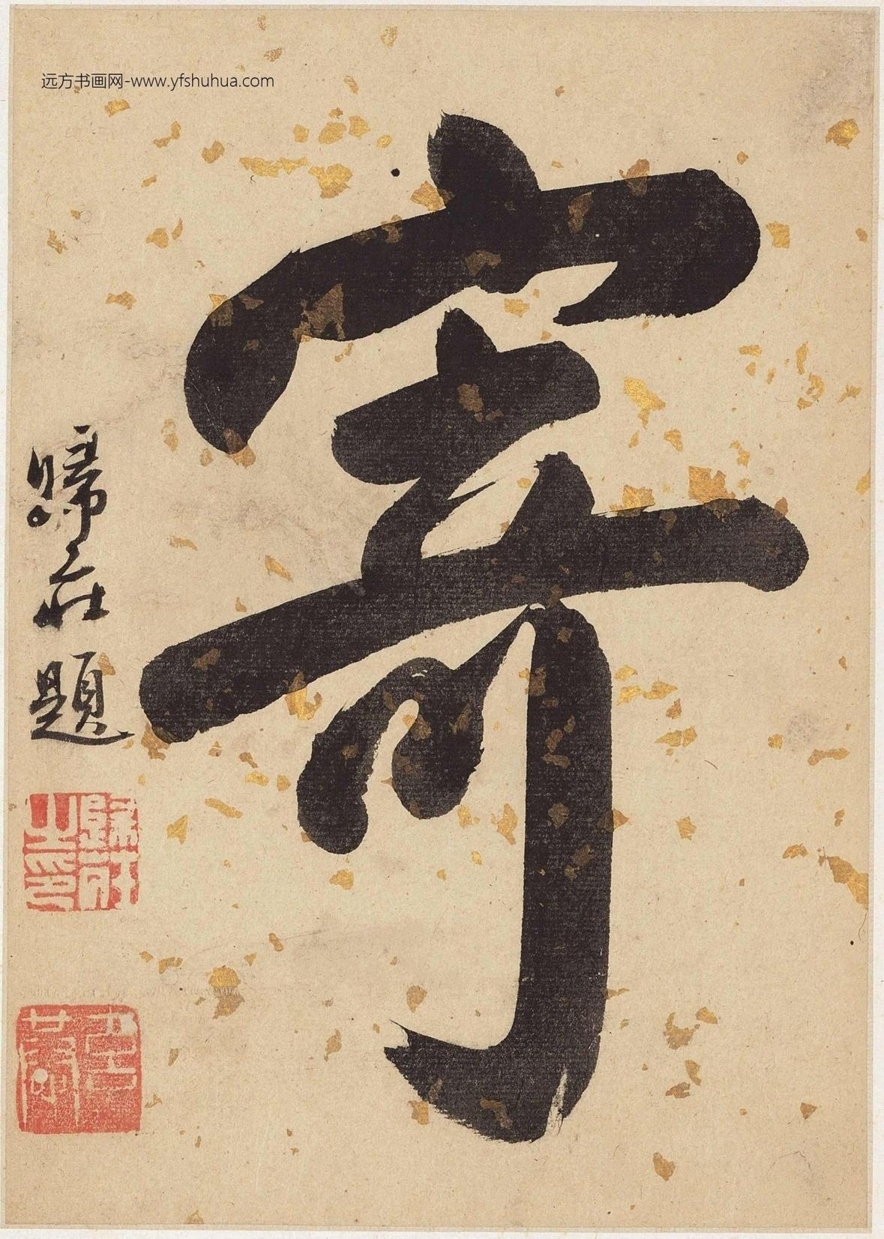 远方书画网-www.yfshuhua.com
寄
歸莊題